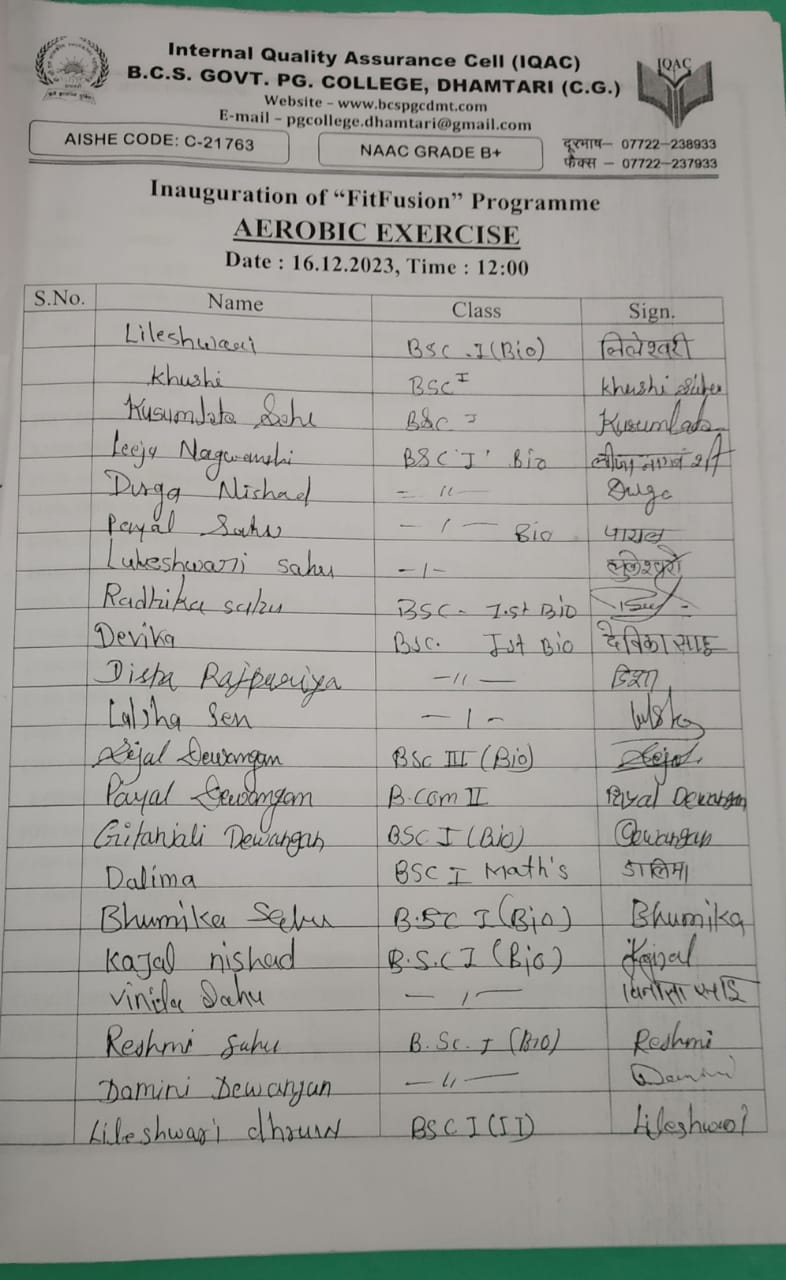 Internal Quality Assurance Cell (IQAC)
IQAC
B.C.S. GOVT. PG. COLLEGE, DHAMTARI (C.G.)
Website – www.bcspgcdmt.com
E-mail – pgcollege.dhamtari@gmail.com
AISHE CODE: C-21763 NAAC GRADE B+ दूरभाष– 07722–238933
फैक्स – 07722-237933
Inauguration of “FitFusion” Programme
AEROBIC EXERCISE
Date : 16.12.2023, Time : 12:00
S.No. Name Class Sign.
Lileshwari BSC .I (Bio) लिलेश्वरी
Khushi BSC I Khushi
Kusumlata Sahu BSC I Kusumlata
Leeja Nagwanshi BSC 'I' Bio
Durga Nishad – 11 – Durga
Payal Sahu – 1 – Bio पायल
Lukeshwari sahu – 1 – लुकेश्वरी
Radhika sahu BSC - I.st Bio
Devika BSC. Ist Bio देविका साहू
Disha Rajpuriya – 11 – डिशा
Sen – 1 –
Dewangan BSC III (Bio)
Payal Dewangan B.Com II Payal Dewangan
Gitanjali Dewangan BSC I (Bio) Dewangan
Dalima BSC I Math's डालिमा
Bhumika Sahu B.SC I (Bio) Bhumika
Kajal nishad B.S.C I (Bio) Kajal
Sahu – 1 –
Reshmi Sahu B.Sc. I (BIO) Reshmi
Damini Dewangan – 11 – Damini
Lileshwari dhruw BSC I (II) Lileshwari